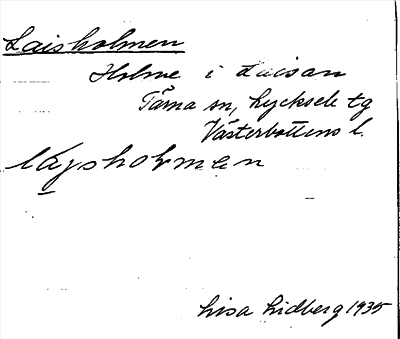 Laisholmen
Holme i Laisan
Tärna sn, Lycksele tg
Västerbottens l.
lájshołmen
Lisa Lidberg 1935